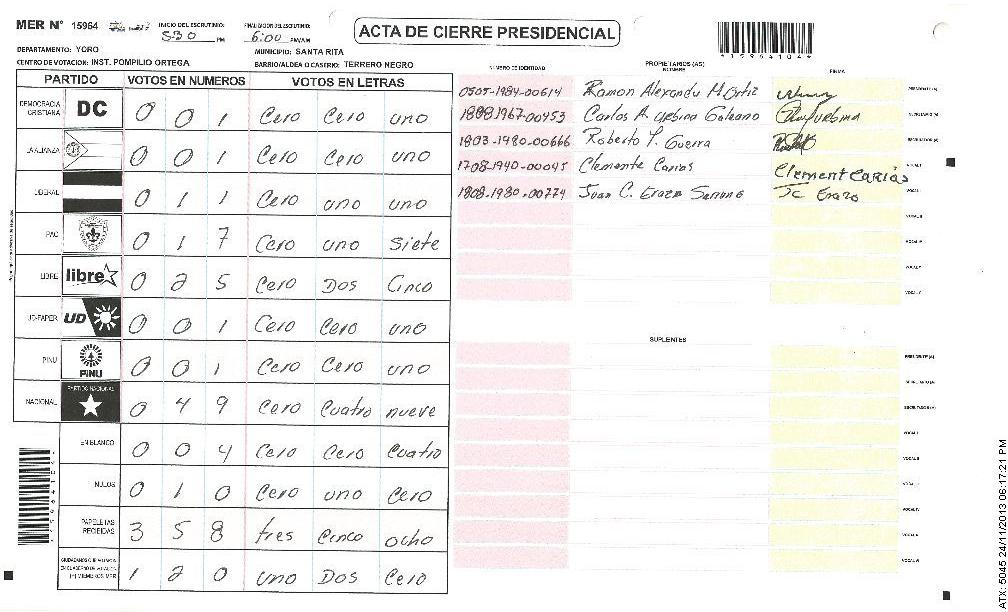 MER N° 15964
INICIO DEL ESCRUTINIO:
5:30 PM
FINALIZACION DEL ESCRUTINIO:
6:00 PM/AM
ACTA DE CIERRE PRESIDENCIAL
*15964104*
DEPARTAMENTO: YORO
MUNICIPIO: SANTA RITA
CENTRO DE VOTACION: INST. POMPILIO ORTEGA
BARRIO/ALDEA O CASERIO: TERRERO NEGRO
PARTIDO VOTOS EN NUMEROS VOTOS EN LETRAS
DEMOCRACIA CRISTIANA DC 0 0 1 Cero Cero uno
LA ALIANZA 0 0 1 Cero Cero uno
LIBERAL 0 1 1 Cero uno uno
PAC 0 1 7 Cero uno siete
LIBRE libre 0 2 5 Cero Dos Cinco
UD-FAPER UD 0 0 1 Cero Cero uno
PINU PINU 0 0 1 Cero Cero uno
NACIONAL PARTIDO NACIONAL 0 4 9 Cero Cuatro nueve
EN BLANCO 0 0 4 Cero Cero Cuatro
NULOS 0 1 0 Cero uno Cero
PAPELETAS RECIBIDAS 3 5 8 tres cinco ocho
1 2 0 uno Dos Cero
NUMERO DE IDENTIDAD PROPIETARIOS (AS) NOMBRE FIRMA
0505-1984-00614 Ramon Alexandu H. Ortiz PRESIDENTE (A)
1808-1967-00453 Carlos A. Urbina Galeano SECRETARIO (A)
1803-1980-00666 Roberto Y. Guerra ESCRUTADOR (A)
1708-1940-00045 Clemente Carias Clement Carias VOCAL I
1808-1980-00774 Juan C. Erazo Serrano Jc Erazo VOCAL II
VOCAL III
VOCAL IV
VOCAL V
SUPLENTES
PRESIDENTE (A)
SECRETARIO (A)
ESCRUTADOR (A)
VOCAL I
VOCAL II
VOCAL III
VOCAL IV
VOCAL V
ATX: 5045 24/11/2013 06:17:21 PM